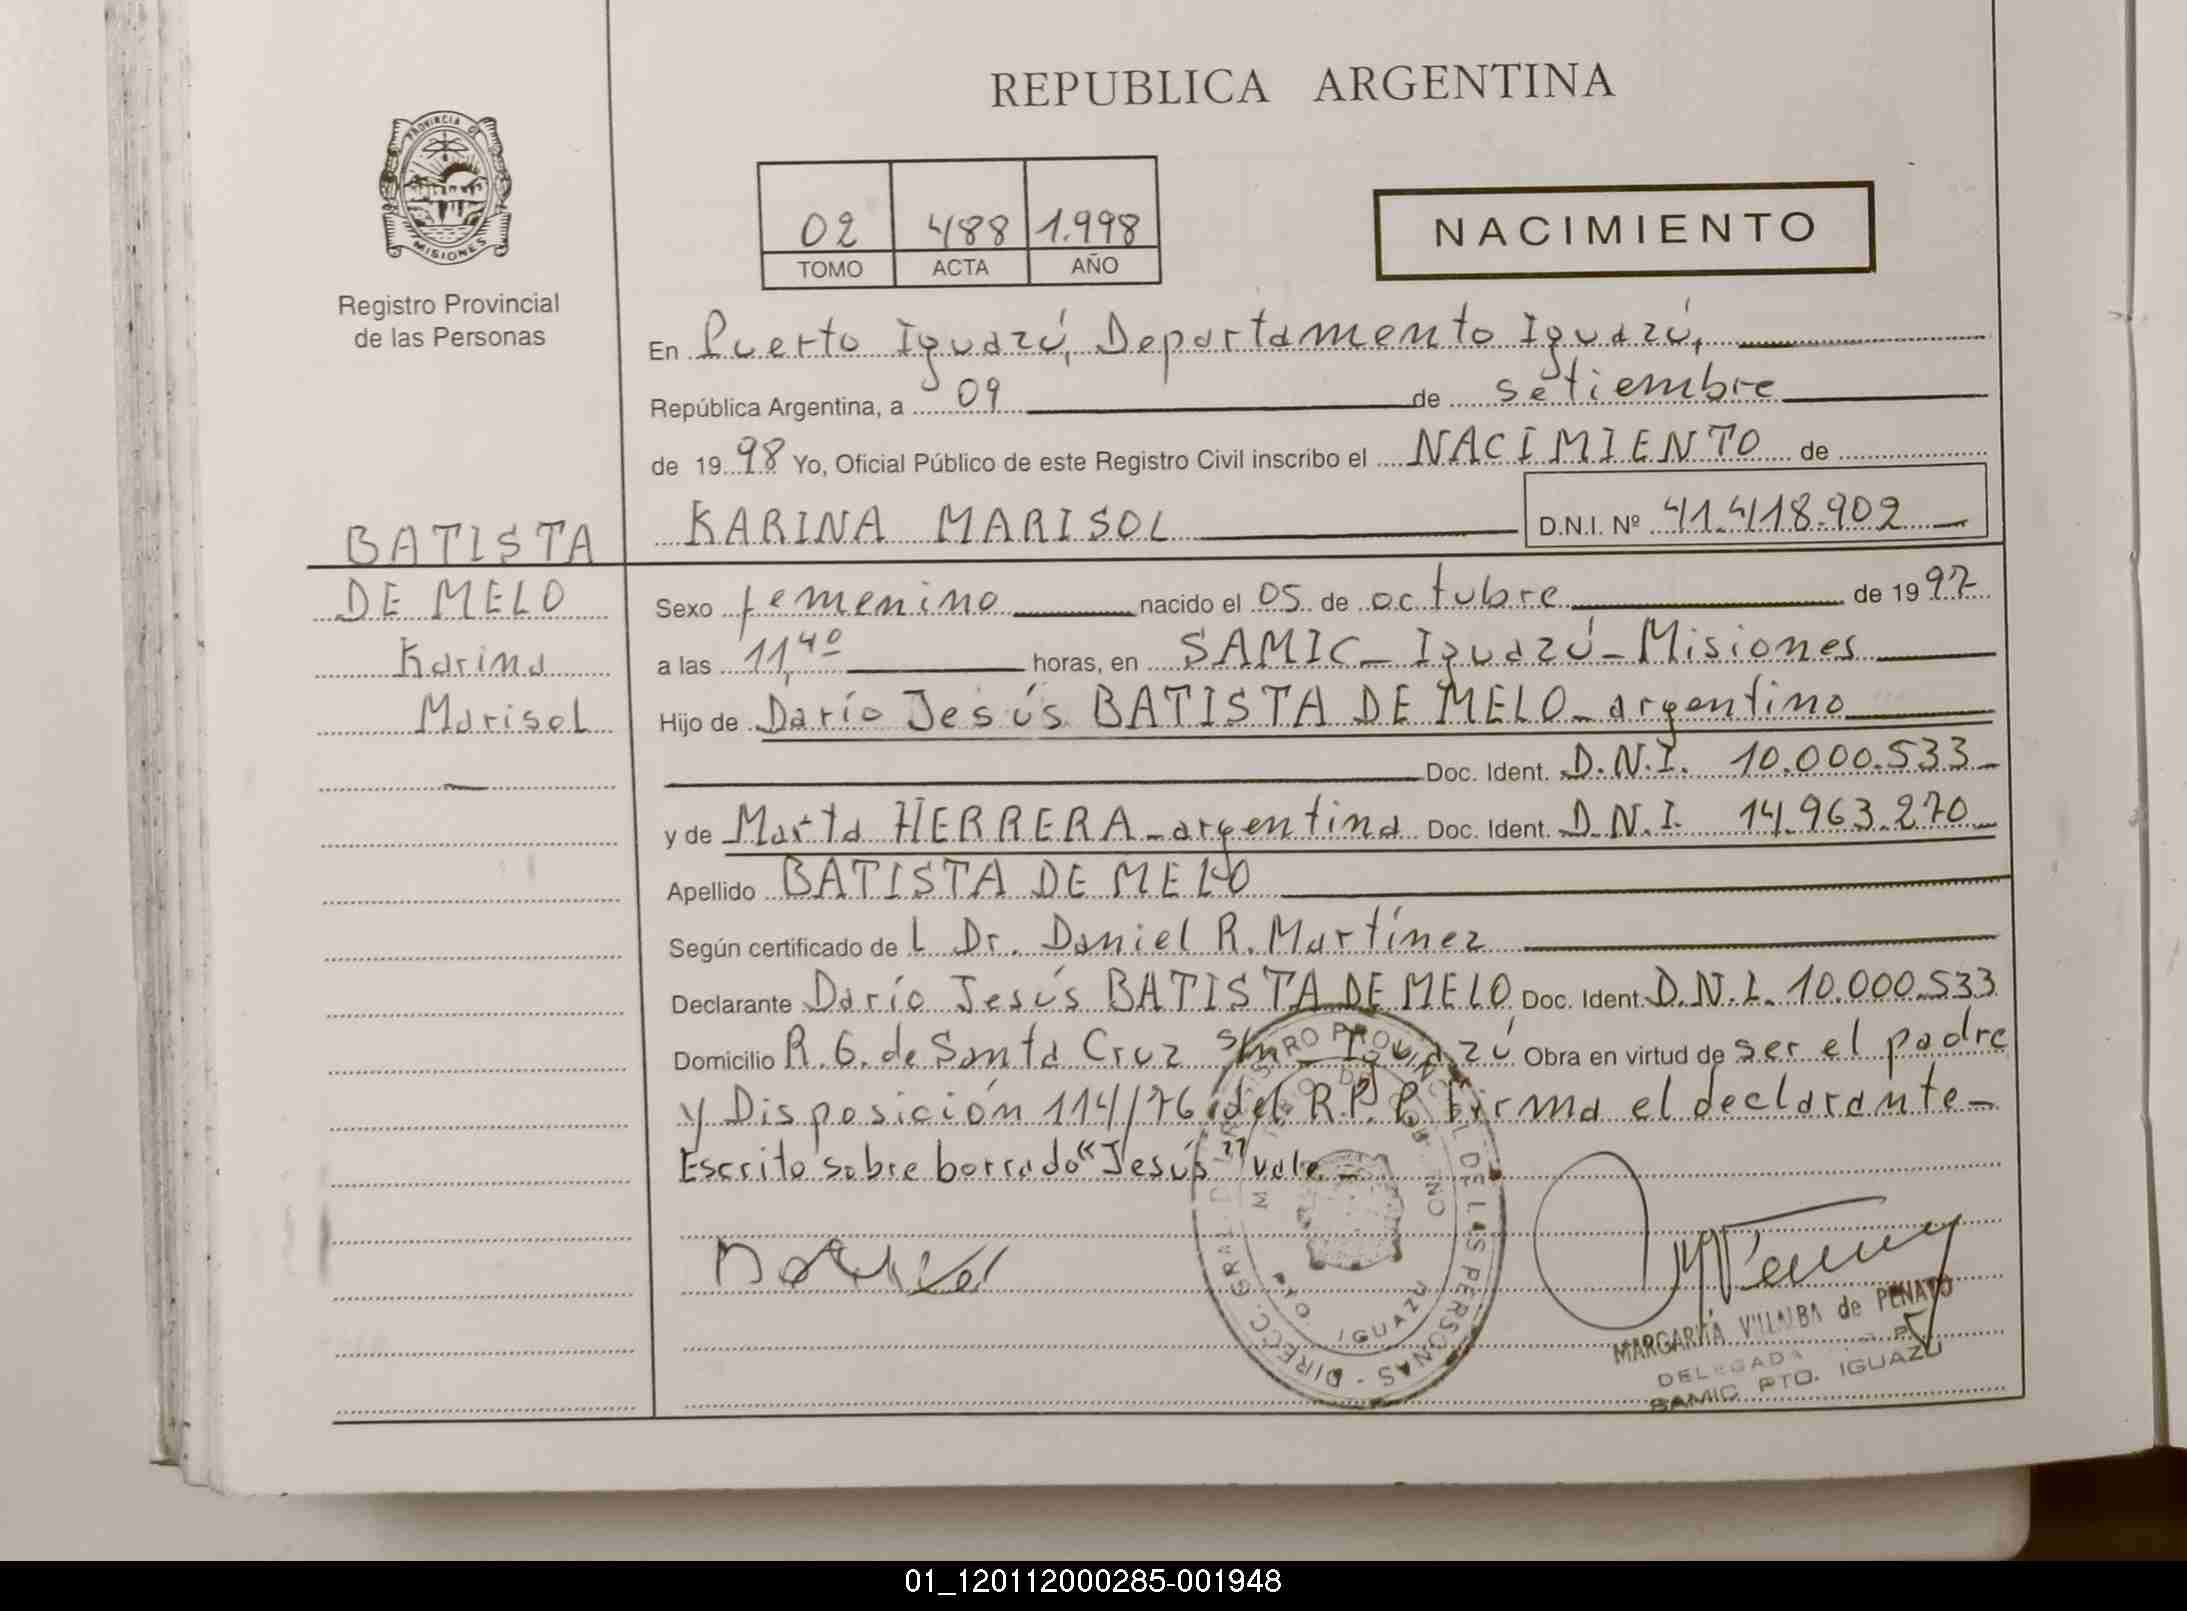 REPUBLICA ARGENTINA
PROVINCIA DE
MISIONES
Registro Provincial
de las Personas
02 488 1.998
TOMO ACTA AÑO
NACIMIENTO
En Puerto Iguazú, Departamento Iguazú,
República Argentina, a 09 de setiembre
de 1998 Yo, Oficial Público de este Registro Civil inscribo el NACIMIENTO de
KARINA MARISOL D.N.I. Nº 41.418.902
BATISTA
DE MELO
Karina
Marisol
Sexo femenino nacido el 05 de octubre de 1997
a las 11,40 horas, en SAMIC - Iguazú - Misiones
Hijo de Darío Jesús BATISTA DE MELO - argentino
Doc. Ident. D.N.I. 10.000.533
y de Marta HERRERA - argentina Doc. Ident. D.N.I. 14.963.270
Apellido BATISTA DE MELO
Según certificado de l Dr. Daniel R. Martínez
Declarante Darío Jesús BATISTA DE MELO Doc. Ident. D.N.I. 10.000.533
Domicilio R. G. de Santa Cruz s/n - Iguazú Obra en virtud de ser el padre
y Disposición 114/76 del R.P.P. firma el declarante -
Escrito sobre borrado "Jesús" vale -
DIRECC. GRAL. DEL REGISTRO PROVINCIAL DE LAS PERSONAS
IGUAZU
MARGARITA VILLALBA de PENAYO
DELEGADA
SAMIC PTO. IGUAZU
01_120112000285-001948